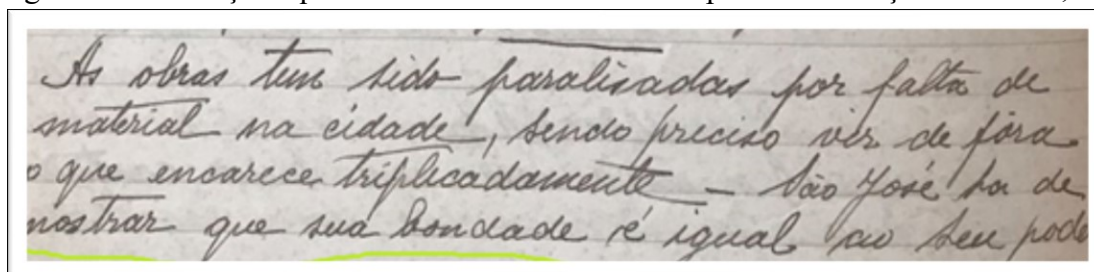 As obras tem sido paralisadas por falta de
material na cidade, sendo preciso vir de fóra
o que encarece triplicadamente – São José ha de
mostrar que sua bondade é igual ao seu pode